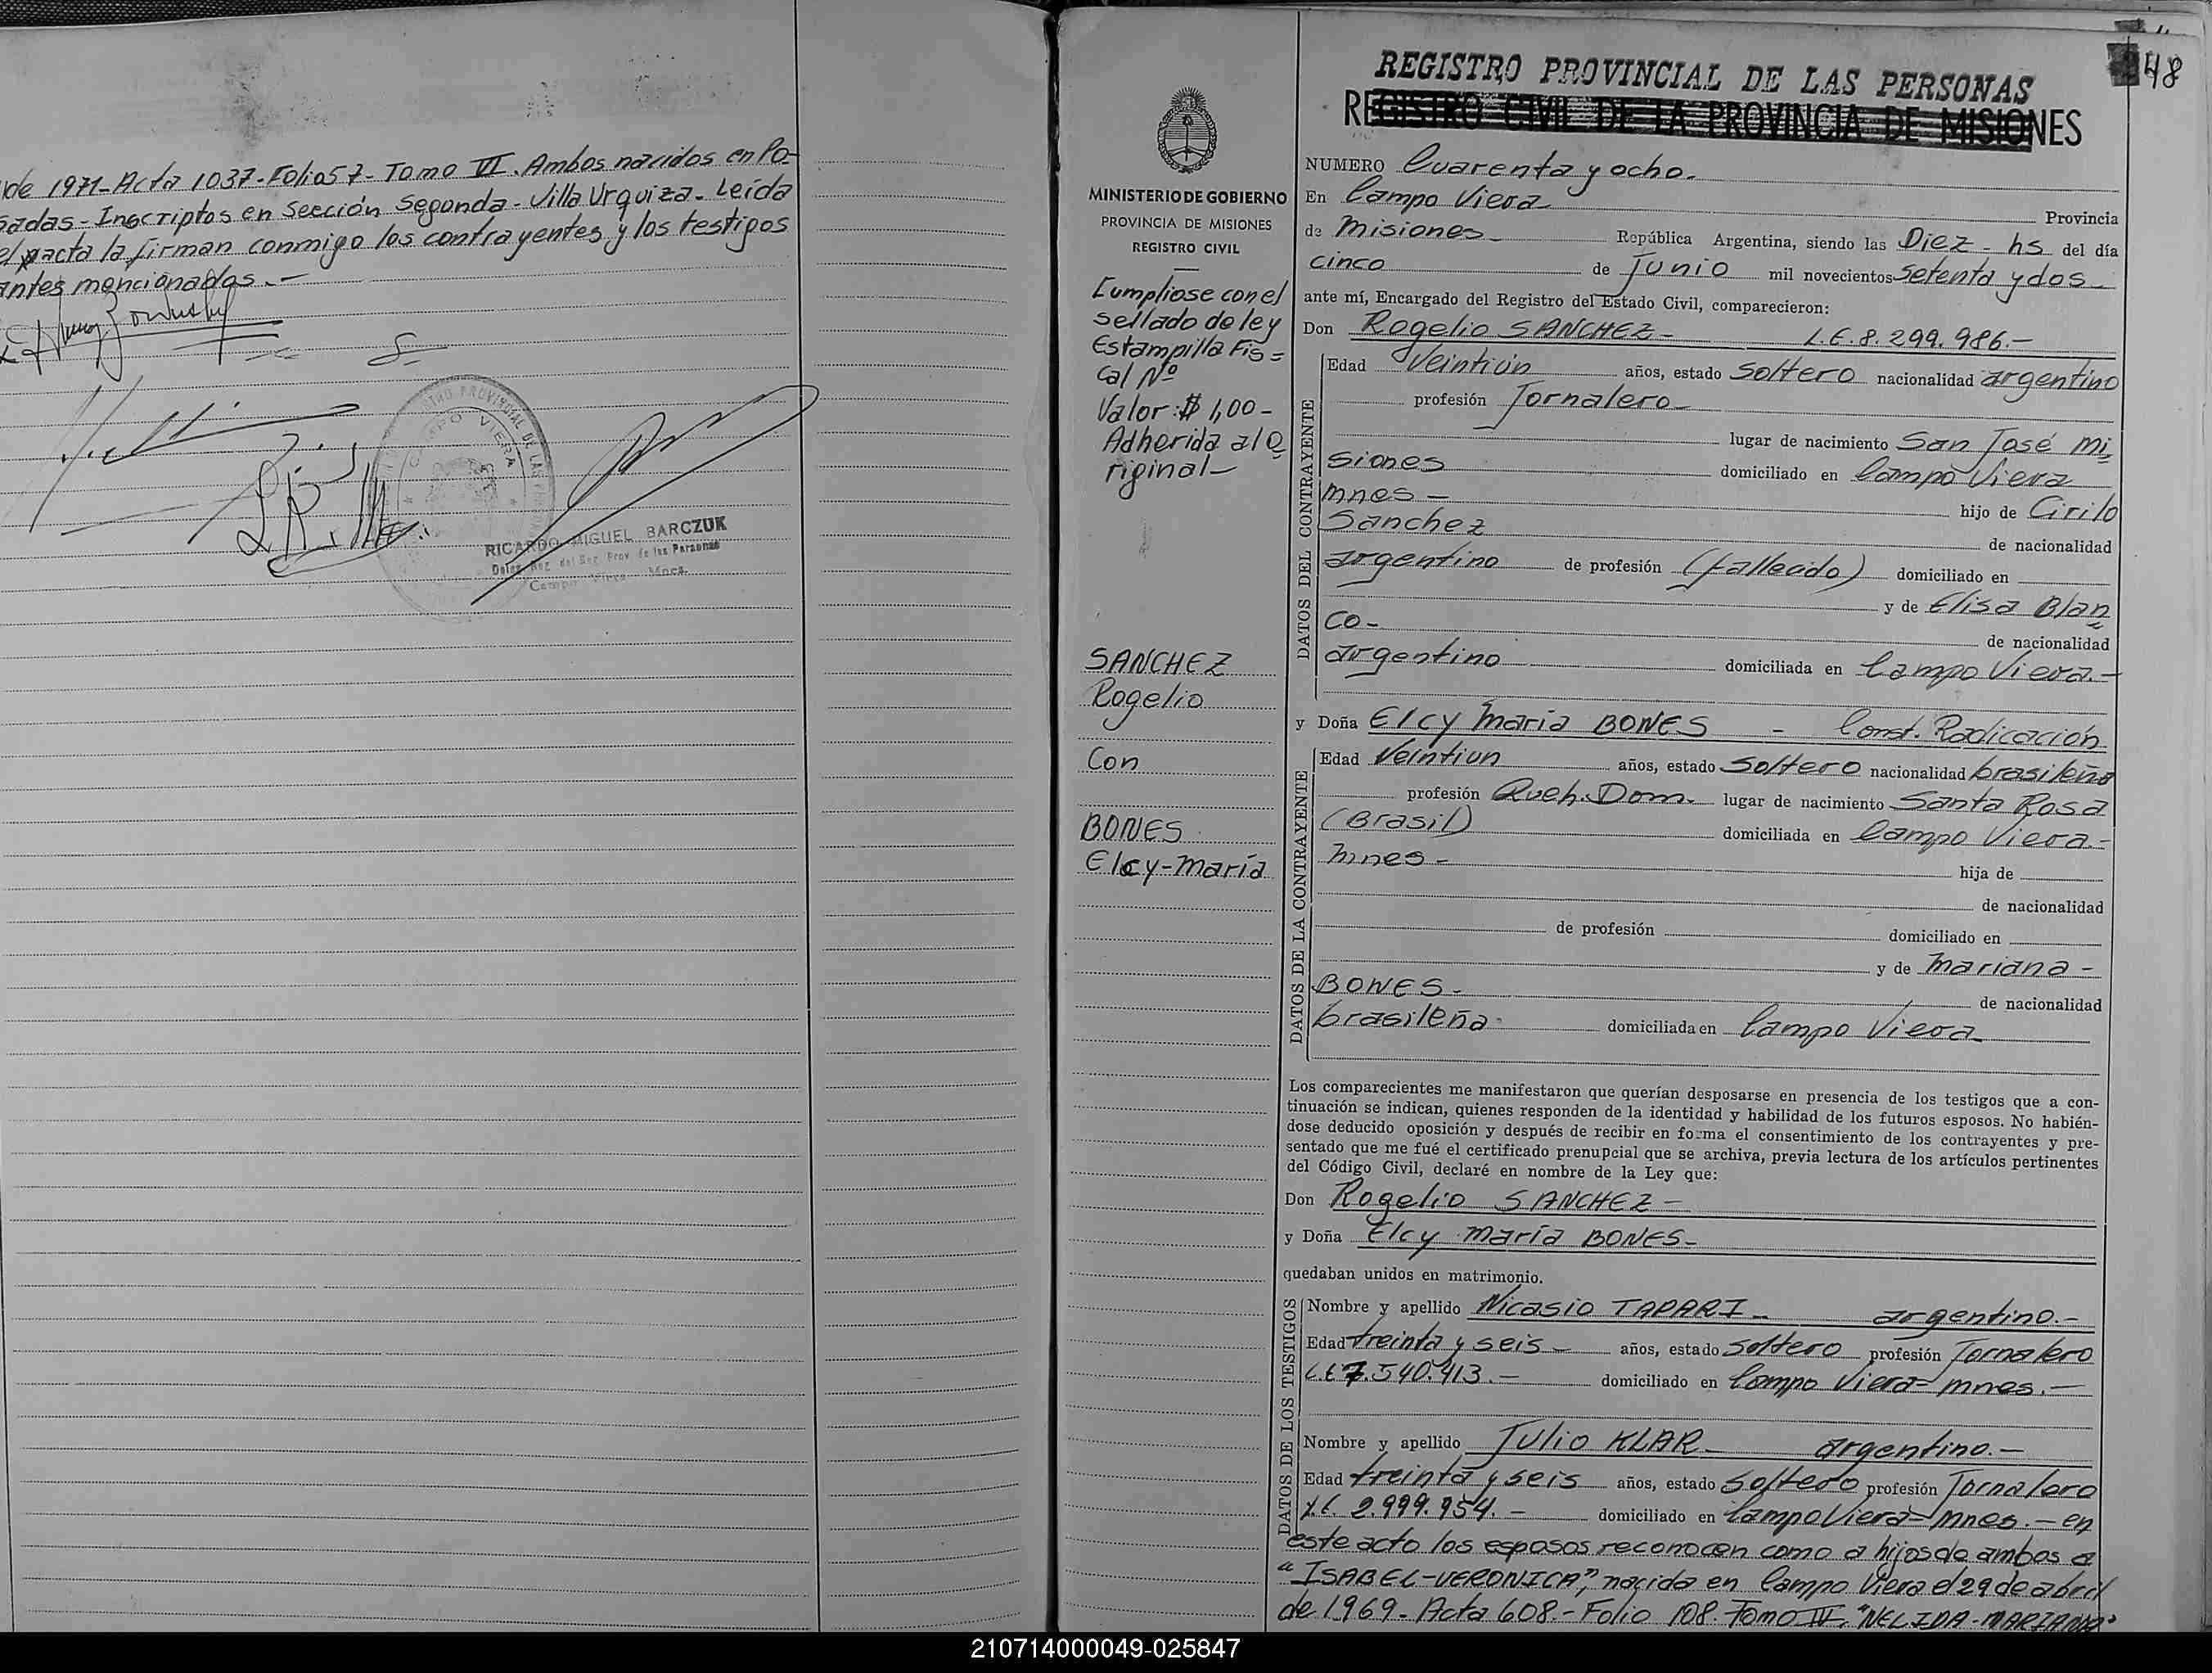 de 1971-Acta 1037-Folio 57-Tomo VI. Ambos nacidos en Po-
sadas-Inscriptos en Sección Segunda-Villa Urquiza-Leída
el acta la firman conmigo los contrayentes y los testigos
antes mencionados.-
CAMPO VIERA
RICARDO MIGUEL BARCZUK
Campo Viera Mnes.
48
REGISTRO PROVINCIAL DE LAS PERSONAS
REGISTRO CIVIL DE LA PROVINCIA DE MISIONES
MINISTERIO DE GOBIERNO
PROVINCIA DE MISIONES
REGISTRO CIVIL
Cumpliose con el
sellado de ley
Estampilla Fis=
cal Nº
Valor: $ 1,00-
Adherida al O
riginal-
SANCHEZ
Rogelio
Con
BONES
Elcy-María
NUMERO Cuarenta y ocho.-
En Campo Viera Provincia
de Misiones- República Argentina, siendo las Diez- hs del día
cinco de Junio mil novecientos setenta y dos-
ante mí, Encargado del Registro del Estado Civil, comparecieron:
Don Rogelio SANCHEZ- L.E. 8.299.986.-
DATOS DEL CONTRAYENTE
Edad Veintiún años, estado soltero nacionalidad argentino
profesión Jornalero-
lugar de nacimiento San José Mi
siones domiciliado en Campo Viera
mnes- hijo de Cirilo
Sanchez de nacionalidad
argentino de profesión (fallecido) domiciliado en
y de Elisa Blan
co- de nacionalidad
argentino domiciliada en Campo Viera.-
y Doña Elcy María BONES - Const. Radicación
DATOS DE LA CONTRAYENTE
Edad Veintiun años, estado soltero nacionalidad brasileña
profesión Queh. Dom. lugar de nacimiento Santa Rosa
(Brasil) domiciliada en Campo Viera.-
mnes- hija de
de nacionalidad
de profesión domiciliado en
y de Mariana-
BONES- de nacionalidad
brasileña- domiciliada en Campo Viera-
Los comparecientes me manifestaron que querían desposarse en presencia de los testigos que a con-
tinuación se indican, quienes responden de la identidad y habilidad de los futuros esposos. No habién-
dose deducido oposición y después de recibir en forma el consentimiento de los contrayentes y pre-
sentado que me fué el certificado prenupcial que se archiva, previa lectura de los artículos pertinentes
del Código Civil, declaré en nombre de la Ley que:
Don Rogelio SANCHEZ-
y Doña Elcy María BONES-
quedaban unidos en matrimonio.
DATOS DE LOS TESTIGOS
Nombre y apellido Nicasio TAPARI- argentino.-
Edad treinta y seis- años, estado soltero profesión Jornalero
L.E 7.540.413.- domiciliado en Campo Viera= mnes.-
Nombre y apellido Julio KLAR- argentino.-
Edad treinta y seis años, estado soltero profesión Jornalero
L.E. 2.999.954.- domiciliado en Campo Viera= mnes.- en
este acto los esposos reconocen como a hijos de ambos a
"ISABEL-VERONICA", nacida en Campo Viera el 29 de abril
de 1969- Acta 608.- Folio 108- Tomo III. "NELIDA-MARIANA"
210714000049-025847